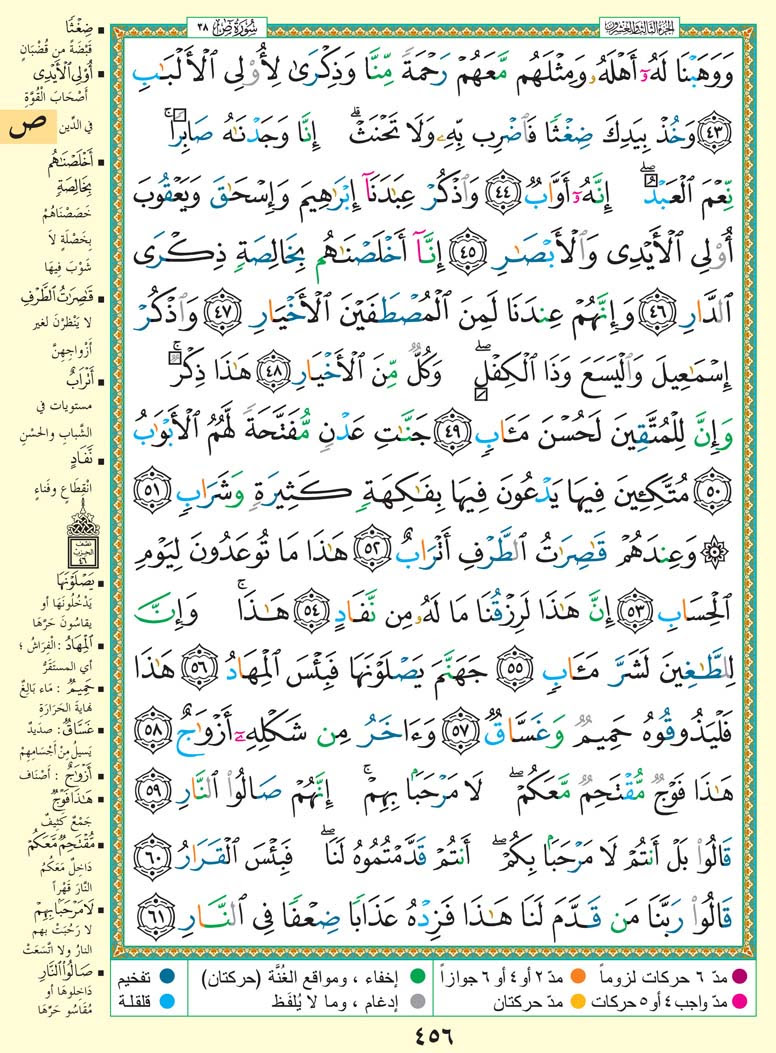 الجزء الثالث والعشرون
سُورَةُ صٓ ٣٨
وَوَهَبْنَا لَهُۥٓ أَهْلَهُۥ وَمِثْلَهُم مَّعَهُمْ رَحْمَةً مِّنَّا وَذِكْرَىٰ لِأُو۟لِى ٱلْأَلْبَٰبِ
﴿٤٣﴾ وَخُذْ بِيَدِكَ ضِغْثًا فَٱضْرِب بِّهِۦ وَلَا تَحْنَثْ ۗ إِنَّا وَجَدْنَٰهُ صَابِرًا ۚ
نِّعْمَ ٱلْعَبْدُ ۖ إِنَّهُۥٓ أَوَّابٌ ﴿٤٤﴾ وَٱذْكُرْ عِبَٰدَنَآ إِبْرَٰهِيمَ وَإِسْحَٰقَ وَيَعْقُوبَ
أُو۟لِى ٱلْأَيْدِى وَٱلْأَبْصَٰرِ ﴿٤٥﴾ إِنَّآ أَخْلَصْنَٰهُم بِخَالِصَةٍ ذِكْرَى
ٱلدَّارِ ﴿٤٦﴾ وَإِنَّهُمْ عِندَنَا لَمِنَ ٱلْمُصْطَفَيْنَ ٱلْأَخْيَارِ ﴿٤٧﴾ وَٱذْكُرْ
إِسْمَٰعِيلَ وَٱلْيَسَعَ وَذَا ٱلْكِفْلِ ۖ وَكُلٌّ مِّنَ ٱلْأَخْيَارِ ﴿٤٨﴾ هَٰذَا ذِكْرٌ ۚ
وَإِنَّ لِلْمُتَّقِينَ لَحُسْنَ مَـَٔابٍ ﴿٤٩﴾ جَنَّٰتِ عَدْنٍ مُّفَتَّحَةً لَّهُمُ ٱلْأَبْوَٰبُ
﴿٥٠﴾ مُتَّكِـِٔينَ فِيهَا يَدْعُونَ فِيهَا بِفَٰكِهَةٍ كَثِيرَةٍ وَشَرَابٍ ﴿٥١﴾
۞ وَعِندَهُمْ قَٰصِرَٰتُ ٱلطَّرْفِ أَتْرَابٌ ﴿٥٢﴾ هَٰذَا مَا تُوعَدُونَ لِيَوْمِ
ٱلْحِسَابِ ﴿٥٣﴾ إِنَّ هَٰذَا لَرِزْقُنَا مَا لَهُۥ مِن نَّفَادٍ ﴿٥٤﴾ هَٰذَا ۚ وَإِنَّ
لِلطَّٰغِينَ لَشَرَّ مَـَٔابٍ ﴿٥٥﴾ جَهَنَّمَ يَصْلَوْنَهَا فَبِئْسَ ٱلْمِهَادُ ﴿٥٦﴾ هَٰذَا
فَلْيَذُوقُوهُ حَمِيمٌ وَغَسَّاقٌ ﴿٥٧﴾ وَءَاخَرُ مِن شَكْلِهِۦٓ أَزْوَٰجٌ ﴿٥٨﴾
هَٰذَا فَوْجٌ مُّقْتَحِمٌ مَّعَكُمْ ۖ لَا مَرْحَبًۢا بِهِمْ ۚ إِنَّهُمْ صَالُوا۟ ٱلنَّارِ ﴿٥٩﴾
قَالُوا۟ بَلْ أَنتُمْ لَا مَرْحَبًۢا بِكُمْ ۖ أَنتُمْ قَدَّمْتُمُوهُ لَنَا ۖ فَبِئْسَ ٱلْقَرَارُ ﴿٦٠﴾
قَالُوا۟ رَبَّنَا مَن قَدَّمَ لَنَا هَٰذَا فَزِدْهُ عَذَابًا ضِعْفًا فِى ٱلنَّارِ ﴿٦١﴾
ص
▪ ضِغْثًا
قَبْضَةً مِن قُضْبَانٍ
▪ أُوْلِى ٱلْأَيْدِى
أَصْحَابَ القُوَّةِ
في الدِّين
▪ أَخْلَصْنَٰهُم
بِخَالِصَةٍ
خَصَصْنَاهُمْ
بِخَصْلَةٍ لاَ
شَوْبَ فِيهَا
▪ قَٰصِرَٰتُ ٱلطَّرْفِ
لا يَنْظُرْنَ لغير
أزْواجِهِنَّ
▪ أَتْرَابٌ
مستويات في
الشَّباب والحُسْنِ
▪ نَّفَادٍ
انْقِطَاعٍ وفَناءٍ
نصف
الحزب
٤٦
▪ يَصْلَوْنَهَا
يَدْخُلُونَهَا أو
يقاسُونَ حَرَّهَا
▪ ٱلْمِهَادُ : الفِرَاشُ ؛
أي المستَقَرُّ
▪ حَمِيمٌ : مَاء بَالِغٌ
نهايةَ الحَرَارَةِ
▪ غَسَّاقٌ : صديدٌ
يَسيلُ مِنْ أجْسَامِهِمْ
▪ أَزْوَٰجٌ : أصْنَاف
▪ هَٰذَا فَوْجٌ
جَمْعٌ كَثِيفٌ
▪ مُّقْتَحِمٌ مَّعَكُمْ
دَاخِلٌ مَعَكُم
النَّارَ قَهْراً
▪ لَا مَرْحَبًۢا بِهِمْ
لا رَحُبَتْ بهم
النارُ ولا اتَّسَعَتْ
▪ صَالُوا۟ ٱلنَّارِ
دَاخِلوهَا أو
مُقَاسُو حَرِّهَا
مدّ ٦ حركات لزوماً
مدّ ٢ أو ٤ أو ٦ جوازاً
إخفاء ، ومواقع الغُنَّة (حركتان)
تفخيم
مدّ واجب ٤ أو ٥ حركات
مدّ حركتان
إدغام ، وما لا يُلفَظ
قلقلة
٤٥٦